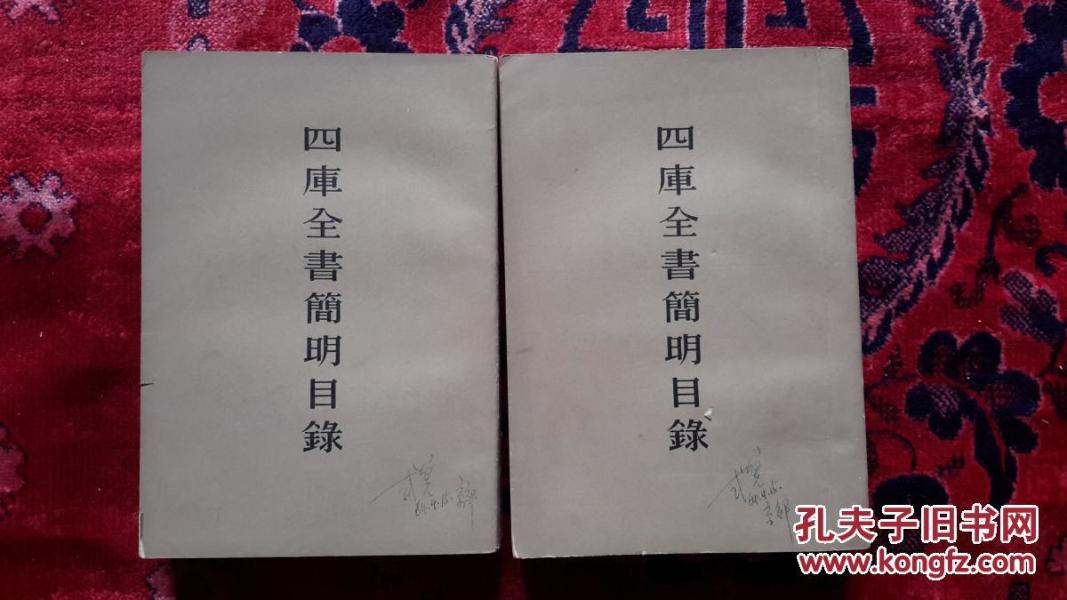 四庫全書簡明目錄
四庫全書簡明目錄
64.4.15.
64.4.15.
孔夫子旧书网
www.kongfz.com